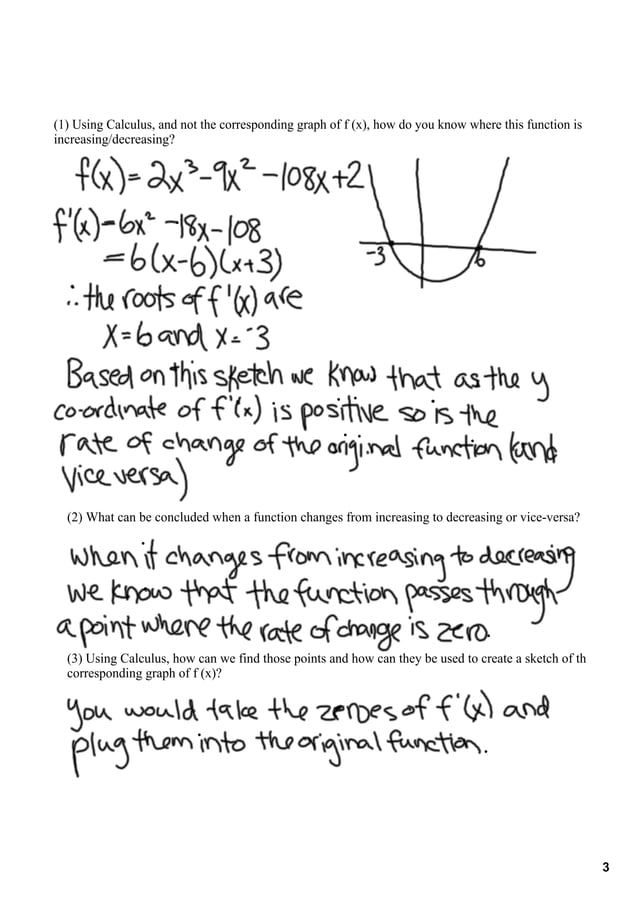 (1) Using Calculus, and not the corresponding graph of f (x), how do you know where this function is
increasing/decreasing?
f(x)=2x³-9x²-108x+2
f'(x)=6x²-18x-108
=6(x-6)(x+3)
-3
6
∴ the roots of f'(x) are
x=6 and x=-3
Based on this sketch we know that as the y
co-ordinate of f'(x) is positive so is the
rate of change of the original function (and
vice versa)
(2) What can be concluded when a function changes from increasing to decreasing or vice-versa?
when it changes from increasing to decreasing
we know that the function passes through
a point where the rate of change is zero.
(3) Using Calculus, how can we find those points and how can they be used to create a sketch of th
corresponding graph of f (x)?
You would take the zeroes of f'(x) and
plug them into the original function.
3